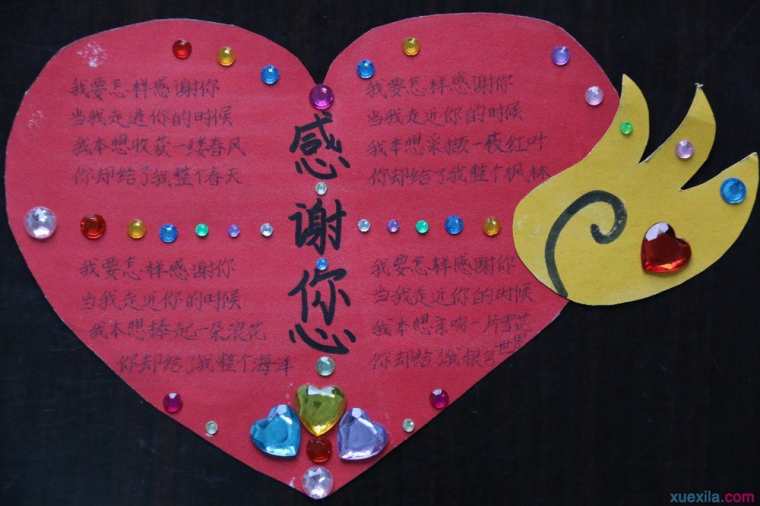 感谢您
我要怎样感谢你
当我走近你的时候
我本想收获一缕春风
你却给了我整个春天
我要怎样感谢你
当我走近你的时候
我本想采撷一枚红叶
你却给了我整个枫林
我要怎样感谢你
当我走近你的时候
我本想捧起一朵浪花
你却给了我整个海洋
我要怎样感谢你
当我走近你的时候
我本想亲吻一片雪花
你却给了我银色世界
xuexila.com